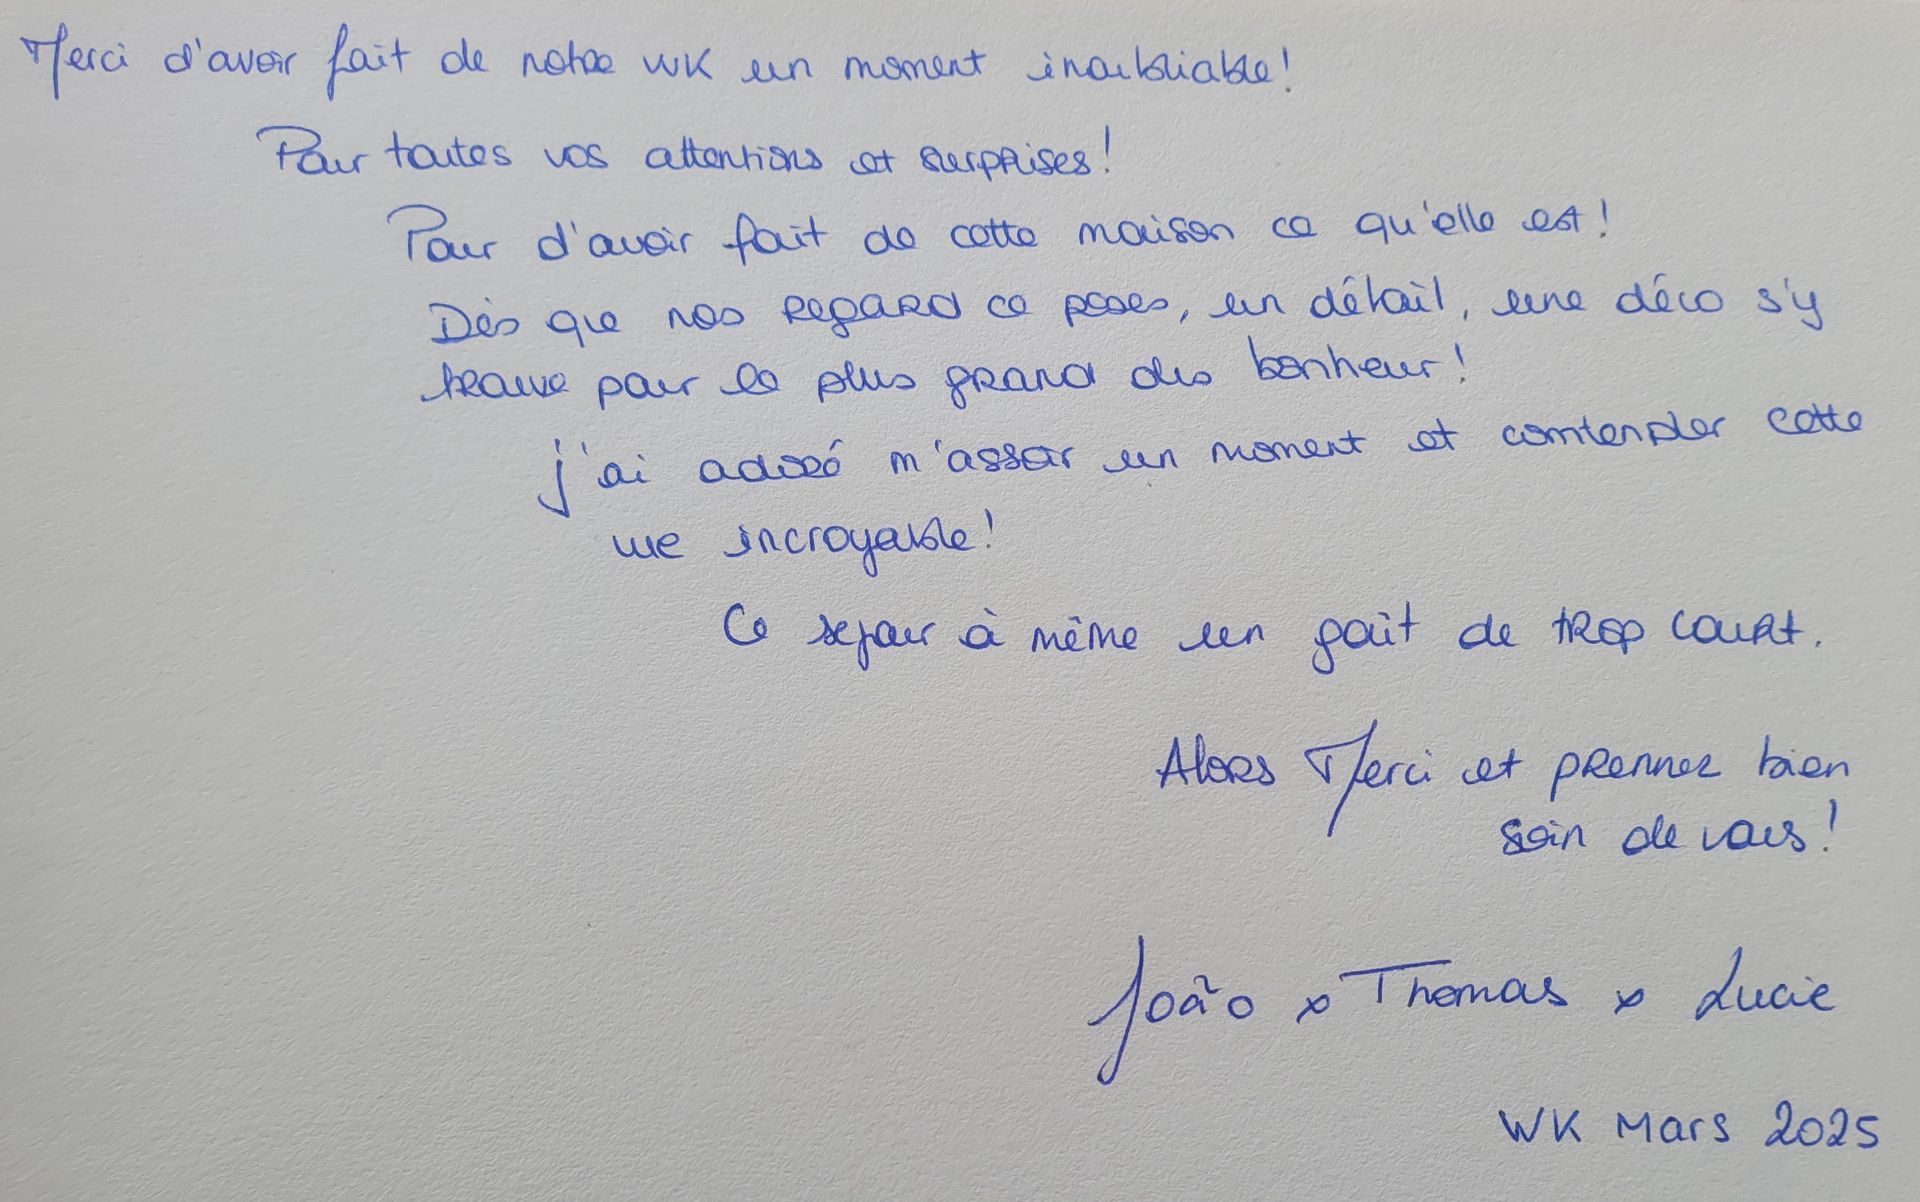 Merci d'avoir fait de notre WK un moment inoubliable!
Pour toutes vos attentions et surprises!
Pour d'avoir fait de cette maison ce qu'elle est!
Dès que nos regard ce poses, un détail, une déco s'y
trouve pour le plus grand des bonheur!
j'ai adoré m'assoir un moment et comtenpler cette
vue incroyable!
Ce sejour à même un goût de trop court.
Alors Merci et prennez bien
soin de vous!
João x Thomas x Lucie
WK Mars 2025